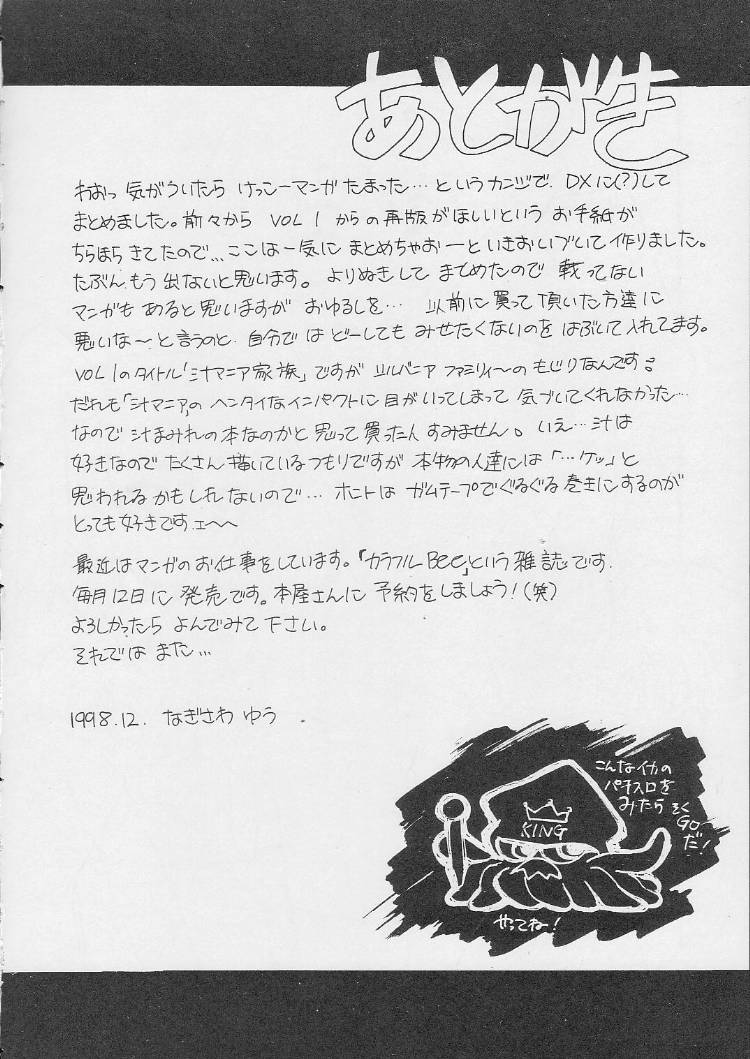 あとがき
わおっ 気がついたら けっこーマンガ たまった… というカンジで、DXに(?)して
まとめました。前々から VOL 1 からの再版がほしいという お手紙が
ちらほら きてたので… ここは一気に まとめちゃおーと いきおいづいて作りました。
たぶん もう出ないと思います。よりぬきして まとめたので 載ってない
マンガも あると思いますが おゆるしを… 以前に買って頂いた方達に
悪いな〜と言うのと、自分では どーしても みせたくないのを はぶいて入れてます。
VOL 1のタイトル「汁マニア家族」ですが シルバニア ファミリィ〜の もじりなんです。
だれも「汁マニア」の ヘンタイなインパクトに目がいってしまって 気づいてくれなかった…
なので 汁まみれの本なのかと思って買った人すみません。いえ…汁は
好きなので たくさん描いているつもりですが 本物の人達には「…ケッ」と
思われるかもしれないので… ホントは ガムテープでぐるぐる巻きにするのが
とっても好きですェ〜〜
最近はマンガのお仕事をしています。「カラフルBee」という雑誌です.
毎月12日に発売です。本屋さんに予約をしましょう!(笑)
よろしかったら よんでみて下さい。
それでは また…
1998.12. なぎさわ ゆう .
こんなイカの
パチスロを
みたら そく
GO
だ!
KING
やってね!